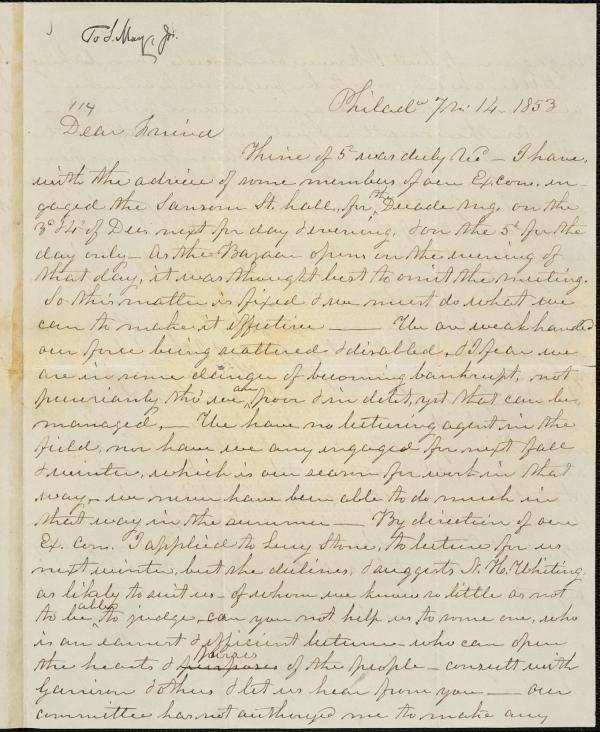 To S. May, Jr.
Philada 7 mo. 14. 1853
114
Dear Friend
Thine of 5th was duly recd — I have,
with the advice of some members of our Ex. Com. en-
gaged the Sansom St. hall, for the Decade mg. on the
3d & 4th of Decr next for day & evening, & on the 5th for the
day only — As the Bazaar opens on the evening of
that day, it was thought best to omit the meeting.
So this matter is fixed & we must do what we
can to make it effective — We are weak handed
our force being scattered & disabled, & I fear we
are in some danger of becoming bankrupt, not
pecuniarily tho' we are poor & in debt, yet that can be
managed, — We have no lecturing agent in the
field, nor have we any engaged for next fall
& winter, which is our season for work in that
way — we never have been able to do much in
that way in the summer — By direction of our
Ex. Com. I applied to Lucy Stone, to lecture for us
next winter, but she declines, & suggests N. H. Whiting
as likely to suit us — of whom we know so little as not
to be able to judge, can you not help us to some one, who
is an earnest & efficient lecturer — who can open
the hearts & purses of the people — consult with
Garrison & others & let us hear from you — our
committee has not authorized me to make any